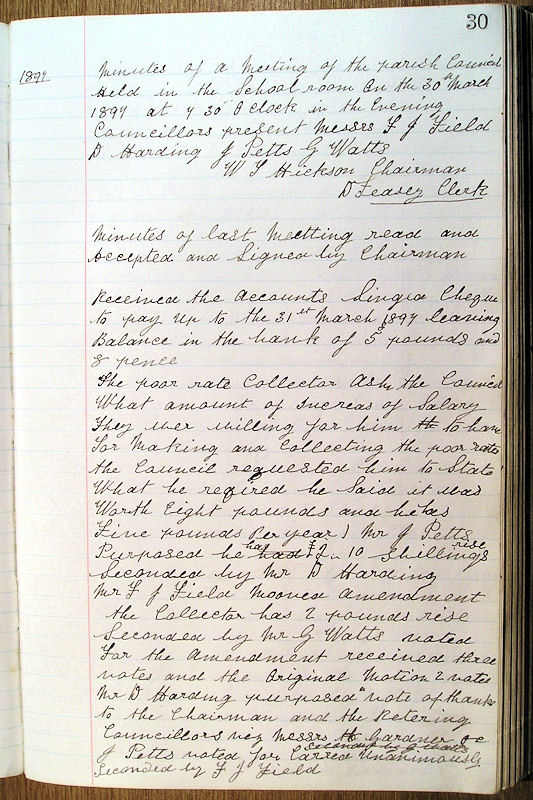 30
1897
Minutes of a Meeting of the parish Council
Held in the School room On the 30th March
1897 at 7 30 O Clock in the Evening
Councillors present Messrs F J Field
D Harding J Petts G Watts
W S Hickson Chairman
D Feasey Clerk
Minutes of last Meetting read and
Accepted and Signed by Chairman
Received the Accounts Singed Cheque
to pay up to the 31st March 1897 leaving
Balance in the bank of 5 pounds and
8 pence
The poor rate Collector Ask the Council
What amount of Increas of Salary
They wer willing for him to have
For Making and Collecting the poor rate
the Council requested him to State
What he reqired he Said it was
Worth Eight pounds and he has
Five pounds Per year Mr J Petts
Purposed he has had £2 .. 10 Shillings rise
Seconded by Mr D Harding
Mr F J Field Mooved Amendment
the Collector has 2 pounds rise
Seconded by Mr G Watts voted
For the Amendment received three
votes and the Original Motion 2 votes
Mr D Harding purposed vote of thanks
to the Chairman and the Retering
Councillors viz Messrs Gardner &c
Seconded by G Watts
J Petts voted for Carred Unanimously
Seconded by F J Field